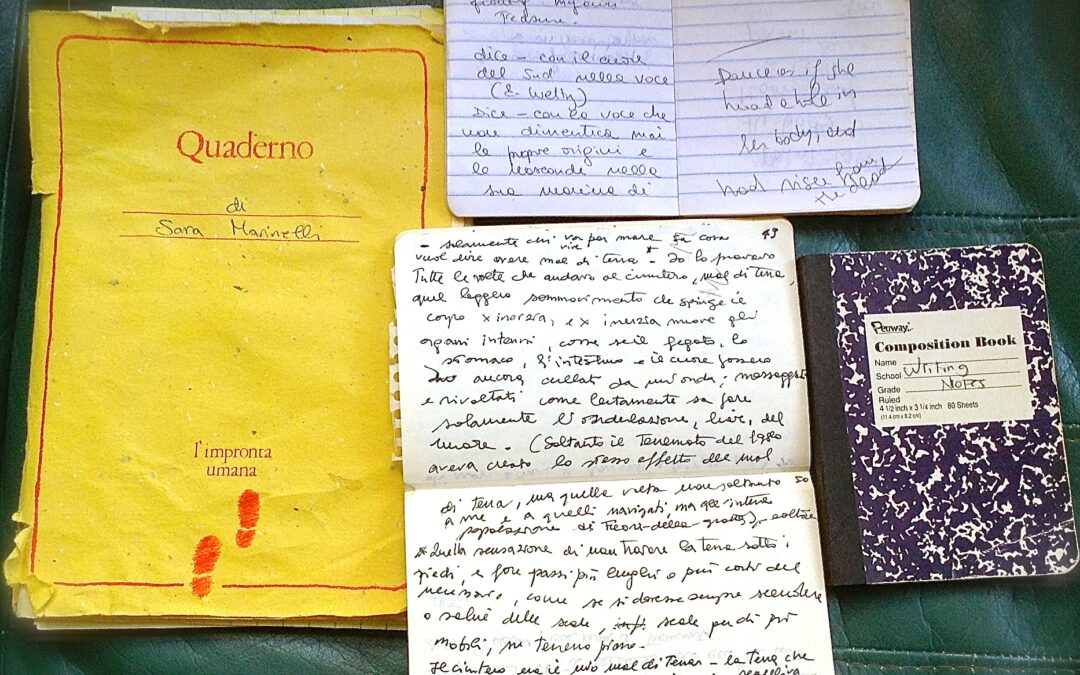 Quaderno
di
Sara Marinelli
l'impronta
umana
Pleasure.
dice - con il cuore
del Sud nella voce
(E. Welty)
Dice - con la voce che
non dimentica mai
le proprie origini e
le nasconde nella
sua maniera di
Dance as if she
had a hole in
her body, and
had risen from
the dead
49
- solamente chi va per mare sa cosa
vive
vuol dire avere mal di terra * - Io lo provavo
Tutte le volte che andavo al cimitero, mal di terra,
quel leggero sommovimento che spinge il
corpo x inerzia, e x inerzia muove gli
organi interni, come se il fegato, lo
stomaco, l'intestino e il cuore fossero
ancora cullati da un'onda; massaggiati
e rivoltati come lentamente sa fare
solamente l'ondulazione, lieve, del
mare. (Soltanto il Terremoto del 1980
aveva creato lo stesso effetto del mal
50
di terra, ma quella volta non soltanto
a me e a quelli navigati, ma all'intera
popolazione di Fuori-della-grotta)
* Quella sensazione di non trovare la terra sotto i
piedi, e fare passi più lunghi o più corti del
necessario, come se si dovesse sempre scendere
o salire delle scale, scale per di più
mobili, su terreno piano.
Il cimitero era il mio mal di Terra - la terra che
Penway
Composition Book
Name
School Writing
Grade Notes
Ruled
4 1/2 inch x 3 1/4 inch 80 Sheets
(11.4 cm x 8.2 cm)